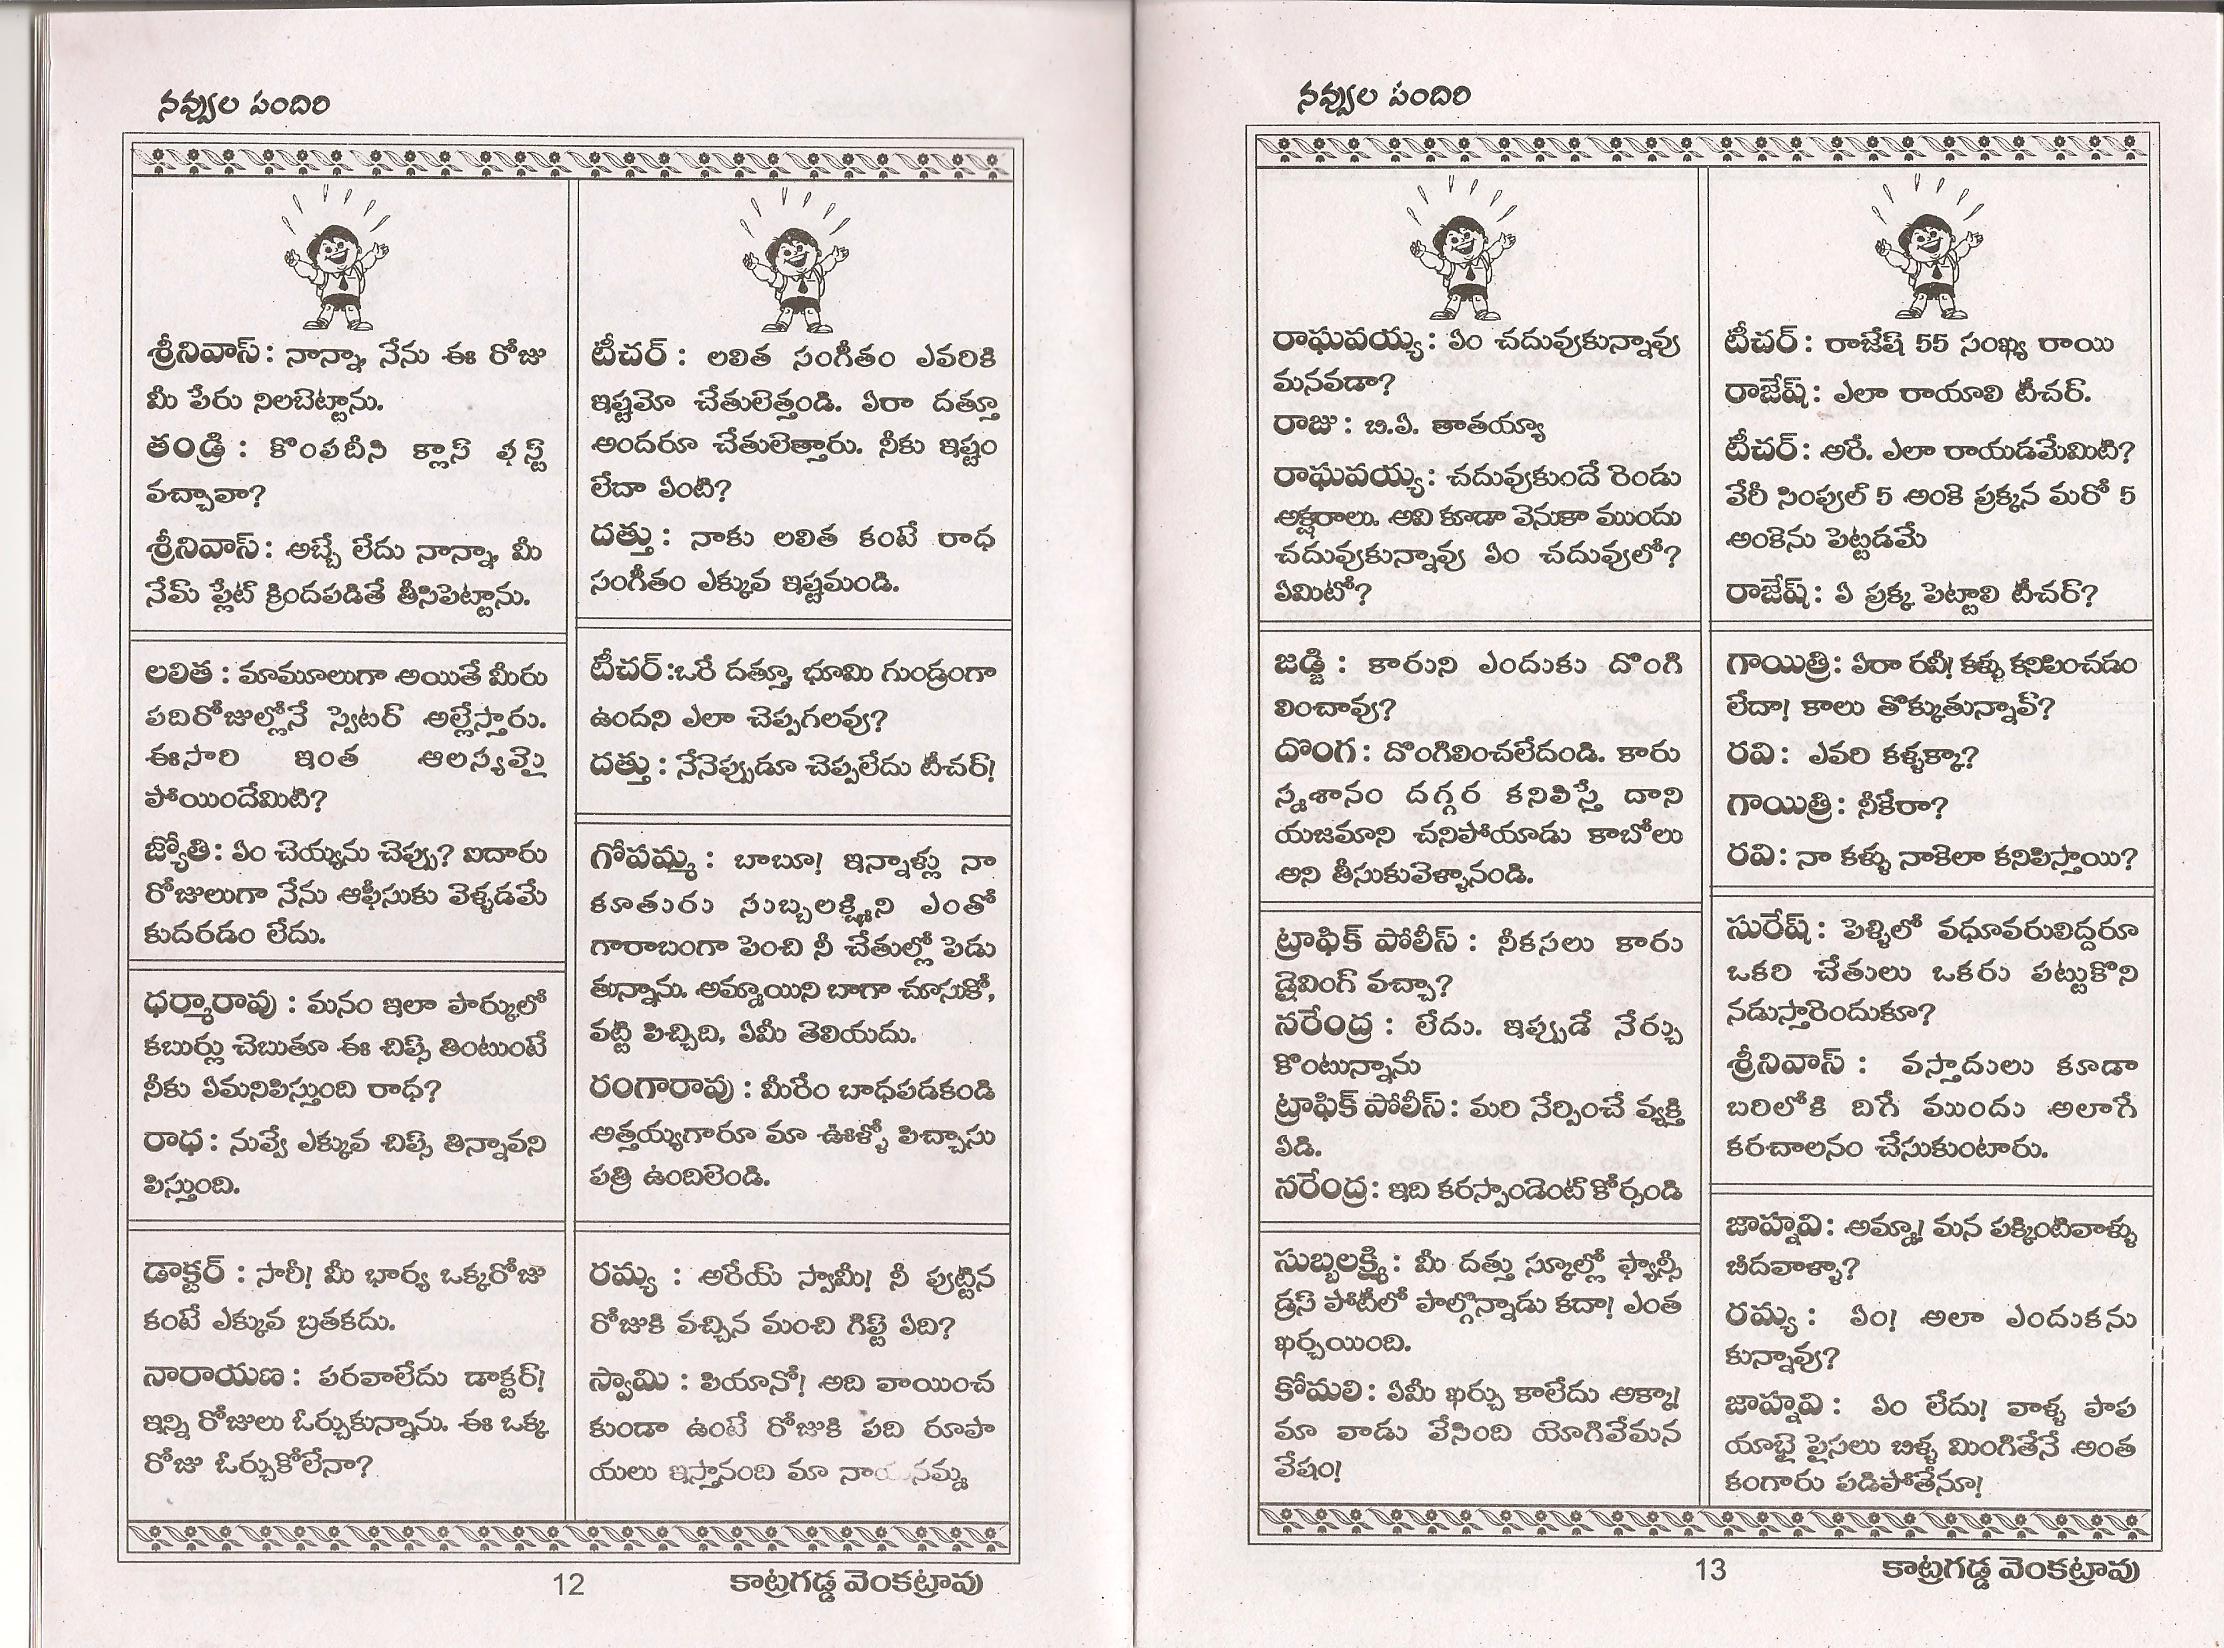 నవ్వుల పందిరి
శ్రీనివాస్ : నాన్నా, నేను ఈ రోజు
మీ పేరు నిలబెట్టాను.
తండ్రి : కొంపదీసి క్లాస్ ఫస్ట్
వచ్చావా?
శ్రీనివాస్ : అబ్బే లేదు నాన్నా, మీ
నేమ్ ప్లేట్ క్రిందపడితే తీసిపెట్టాను.
లలిత : మామూలుగా అయితే మీరు
పదిరోజుల్లోనే స్వెటర్ అల్లేస్తారు.
ఈసారి ఇంత ఆలస్యమై
పోయిందేమిటి?
జ్యోతి : ఏం చెయ్యను చెప్పు? ఐదారు
రోజులుగా నేను ఆఫీసుకు వెళ్ళడమే
కుదరడం లేదు.
ధర్మారావు : మనం ఇలా పార్కులో
కబుర్లు చెబుతూ ఈ చిప్స్ తింటుంటే
నీకు ఏమనిపిస్తుంది రాధ?
రాధ : నువ్వే ఎక్కువ చిప్స్ తిన్నావని
పిస్తుంది.
డాక్టర్ : సారీ! మీ భార్య ఒక్కరోజు
కంటే ఎక్కువ బ్రతకదు.
నారాయణ : పరవాలేదు డాక్టర్!
ఇన్ని రోజులు ఓర్చుకున్నాను. ఈ ఒక్క
రోజు ఓర్చుకోలేనా?
టీచర్ : లలిత సంగీతం ఎవరికి
ఇష్టమో చేతులెత్తండి. ఏరా దత్తూ
అందరూ చేతులెత్తారు. నీకు ఇష్టం
లేదా ఏంటి?
దత్తు : నాకు లలిత కంటే రాధ
సంగీతం ఎక్కువ ఇష్టమండి.
టీచర్ :ఒరే దత్తూ, భూమి గుండ్రంగా
ఉందని ఎలా చెప్పగలవు?
దత్తు : నేనెప్పుడూ చెప్పలేదు టీచర్!
గోపమ్మ : బాబూ! ఇన్నాళ్లు నా
కూతురు సుబ్బలక్ష్మిని ఎంతో
గారాబంగా పెంచి నీ చేతుల్లో పెడు
తున్నాను. అమ్మాయిని బాగా చూసుకో,
వట్టి పిచ్చిది, ఏమీ తెలియదు.
రంగారావు : మీరేం బాధపడకండి
అత్తయ్యగారూ మా ఊళ్ళో పిచ్చాసు
పత్రి ఉందిలెండి.
రమ్య : అరేయ్ స్వామీ! నీ పుట్టిన
రోజుకి వచ్చిన మంచి గిఫ్ట్ ఏది?
స్వామి : పియానో! అది వాయించ
కుండా ఉంటే రోజుకి పది రూపా
యలు ఇస్తానంది మా
12
కాట్రగడ్డ వెంకట్రావు
నవ్వుల పందిరి
రాఘవయ్య : ఏం చదువుకున్నావు
మనవడా?
రాజు : బి.ఏ. తాతయ్యా
రాఘవయ్య : చదువుకుందే రెండు
అక్షరాలు. అవి కూడా వెనుకా ముందు
చదువుకున్నావు ఏం చదువులో?
ఏమిటో?
జడ్జి : కారుని ఎందుకు దొంగి
లించావు?
దొంగ : దొంగిలించలేదండి. కారు
స్మశానం దగ్గర కనిపిస్తే దాని
యజమాని చనిపోయాడు కాబోలు
అని తీసుకువెళ్ళానండి.
ట్రాఫిక్ పోలీస్ : నీకసలు కారు
డ్రైవింగ్ వచ్చా?
నరేంద్ర : లేదు. ఇప్పుడే నేర్చు
కొంటున్నాను
ట్రాఫిక్ పోలీస్ : మరి నేర్పించే వ్యక్తి
ఏడి.
నరేంద్ర : ఇది కరస్పాండెంట్ కోర్సండి
సుబ్బలక్ష్మి : మీ దత్తు స్కూల్లో ఫ్యాన్సీ
డ్రస్ పోటీలో పాల్గొన్నాడు కదా! ఎంత
ఖర్చయింది.
కోమలి : ఏమీ ఖర్చు కాలేదు అక్కా!
మా వాడు వేసింది యోగివేమన
వేషం!
టీచర్ : రాజేష్ 55 సంఖ్య రాయి
రాజేష్ : ఎలా రాయాలి టీచర్.
టీచర్ : అరే. ఎలా రాయడమేమిటి?
వేరీ సింపుల్ 5 అంకె ప్రక్కన మరో 5
అంకెను పెట్టడమే
రాజేష్ : ఏ ప్రక్క పెట్టాలి టీచర్?
గాయిత్రి : ఏరా రవీ! కళ్ళు కనిపించడం
లేదా! కాలు తొక్కుతున్నావ్?
రవి : ఎవరి కళ్ళక్కా?
గాయిత్రి : నీకేరా?
రవి : నా కళ్ళు నాకెలా కనిపిస్తాయి?
సురేష్ : పెళ్ళిలో వధూవరులిద్దరూ
ఒకరి చేతులు ఒకరు పట్టుకొని
నడుస్తారెందుకూ?
శ్రీనివాస్ : వస్తాదులు కూడా
బరిలోకి దిగే ముందు అలాగే
కరచాలనం చేసుకుంటారు.
జాహ్నవి : అమ్మా! మన పక్కింటివాళ్ళు
బీదవాళ్ళా?
రమ్య : ఏం! అలా ఎందుకను
కున్నావు?
జాహ్నవి : ఏం లేదు! వాళ్ళ పాప
యాభై పైసలు బిళ్ళ మింగితేనే అంత
కంగారు పడిపోతేనూ!
13
కాట్రగడ్డ వెంకట్రావు